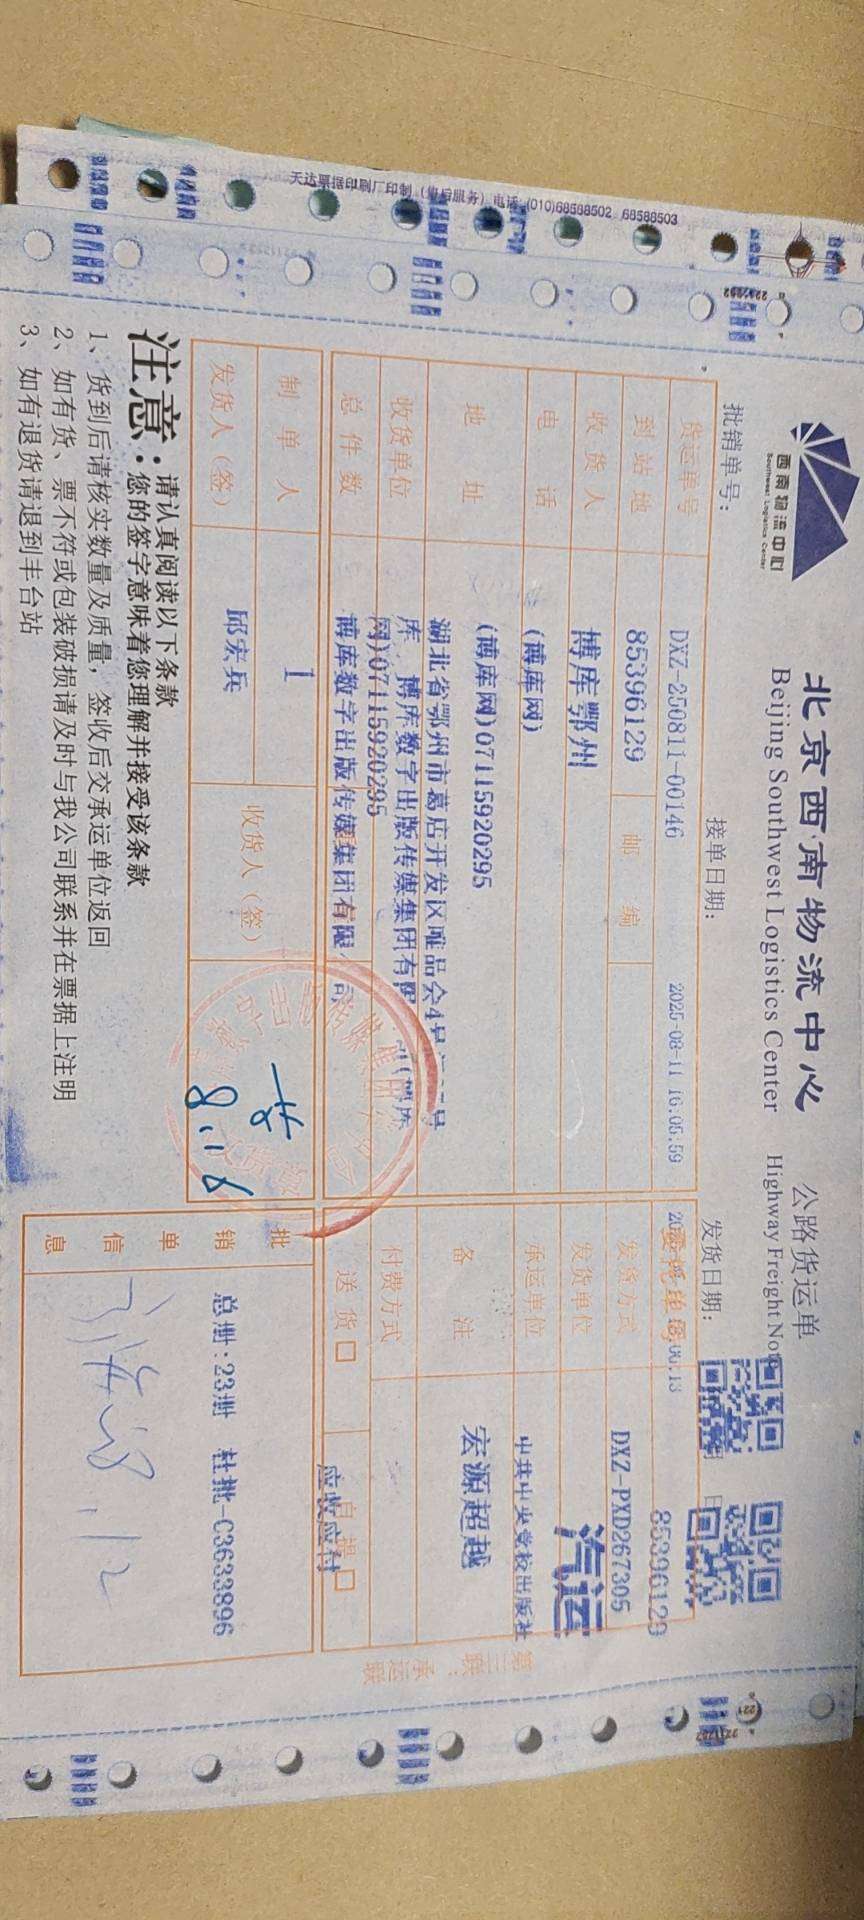 天达票据印刷厂印制（售后服务）电话：(010)68568502 68588503
西南物流中心
Southwest Logistics Center
北京西南物流中心 公路货运单
Beijing Southwest Logistics Center Highway Freight Note
批销单号： 接单日期： 2025-08-11 16:05:59 发货日期：
货运单号 DXZ-250811-00146 85396129
到站地 85396129 邮编 发货方式 DXZ-PXD267305
收货人 博库鄂州 发货单位 汽运
电话 (博库网) 承运单位 中共中央党校出版社
(博库网)07115920295
地址 湖北省鄂州市葛店开发区唯品会4号
库，博库数字出版传媒集团有限
网)07115920295
备注 宏源超越
收货单位 博库数字出版传媒集团有限公司 付费方式
总件数 送货□ 自提□ 应收应付
制单人 1 收货人（签）
发货人（签） 邱宏兵
批销单信息 总册:23册 社批-C3633896
8.18
第三联：承运联
注意：请认真阅读以下条款
您的签字意味着您理解并接受该条款
1、货到后请核实数量及质量，签收后交承运单位返回
2、如有货、票不符或包装破损请及时与我公司联系并在票据上注明
3、如有退货请退到丰台站